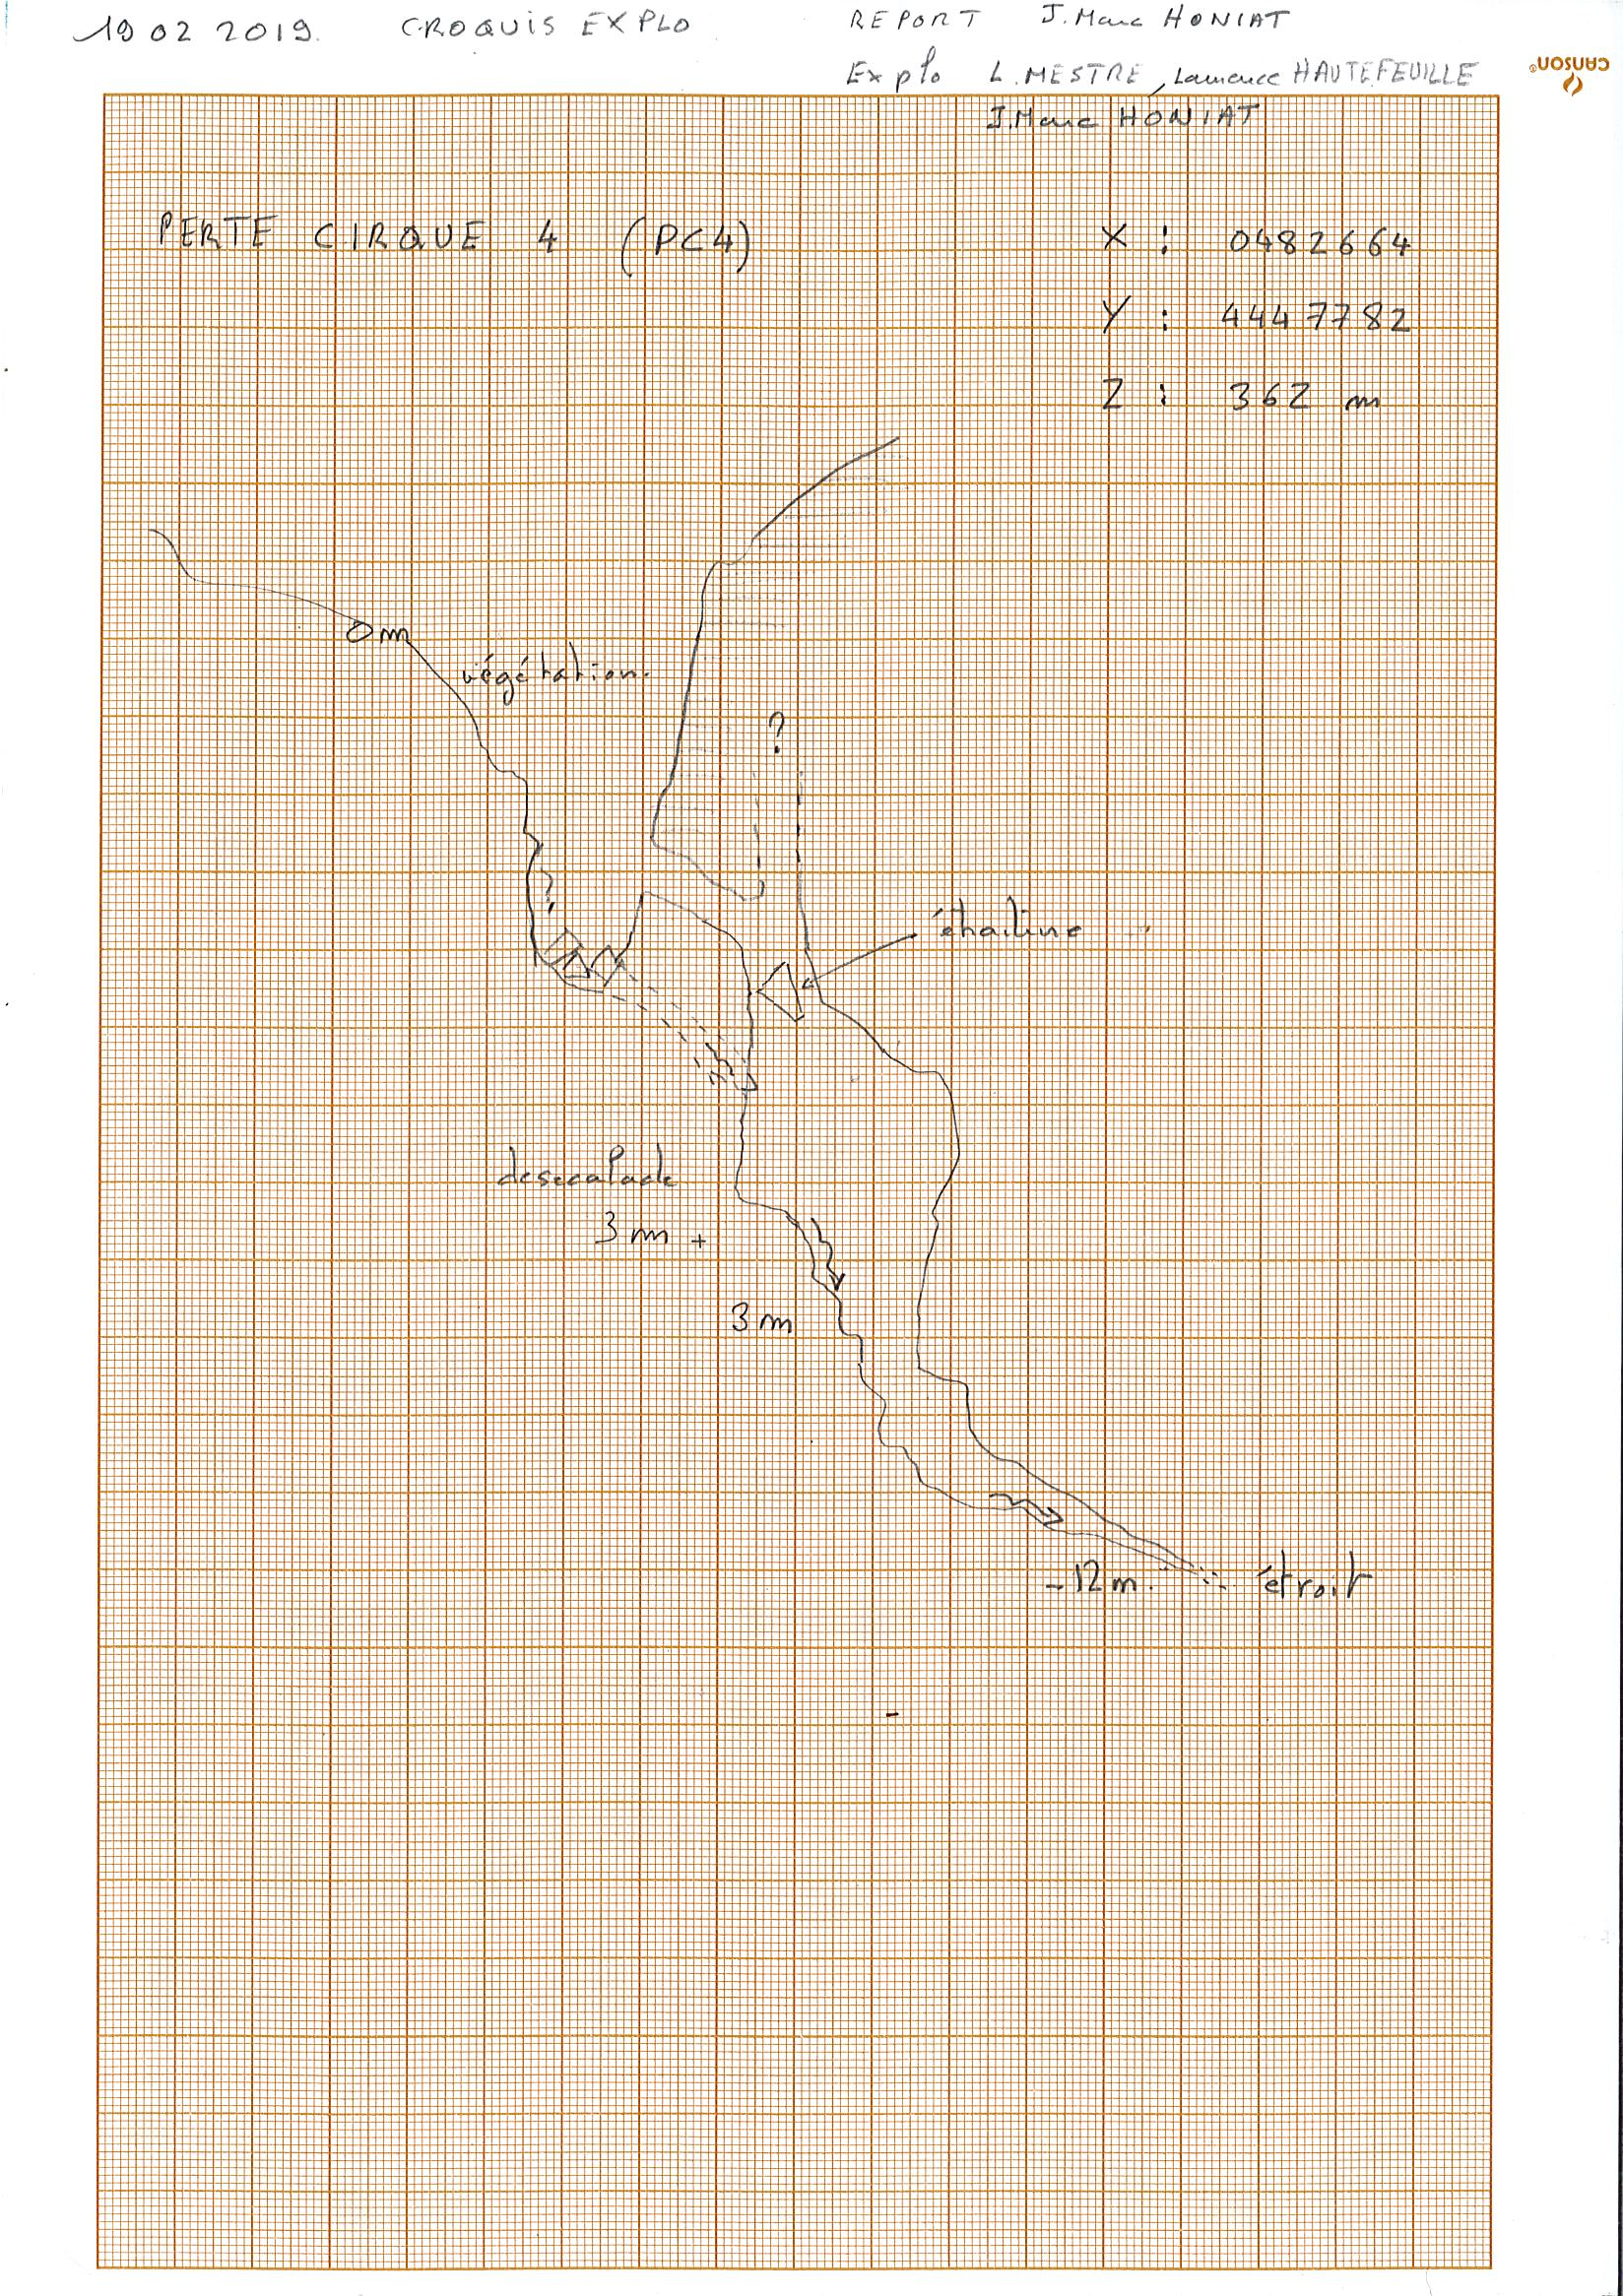 19 02 2019. CROQUIS EXPLO REPORT J. Marc HONIAT
Explo L. MESTRE, Laurence HAUTEFEUILLE
J. Marc HONIAT
CANSON®
PERTE CIRQUE 4 (PC4)
X : 0482664
Y : 4447782
Z : 362 m
0 m
végétation.
?
?
désescalade
3 m +
3 m
-12 m.
étroit